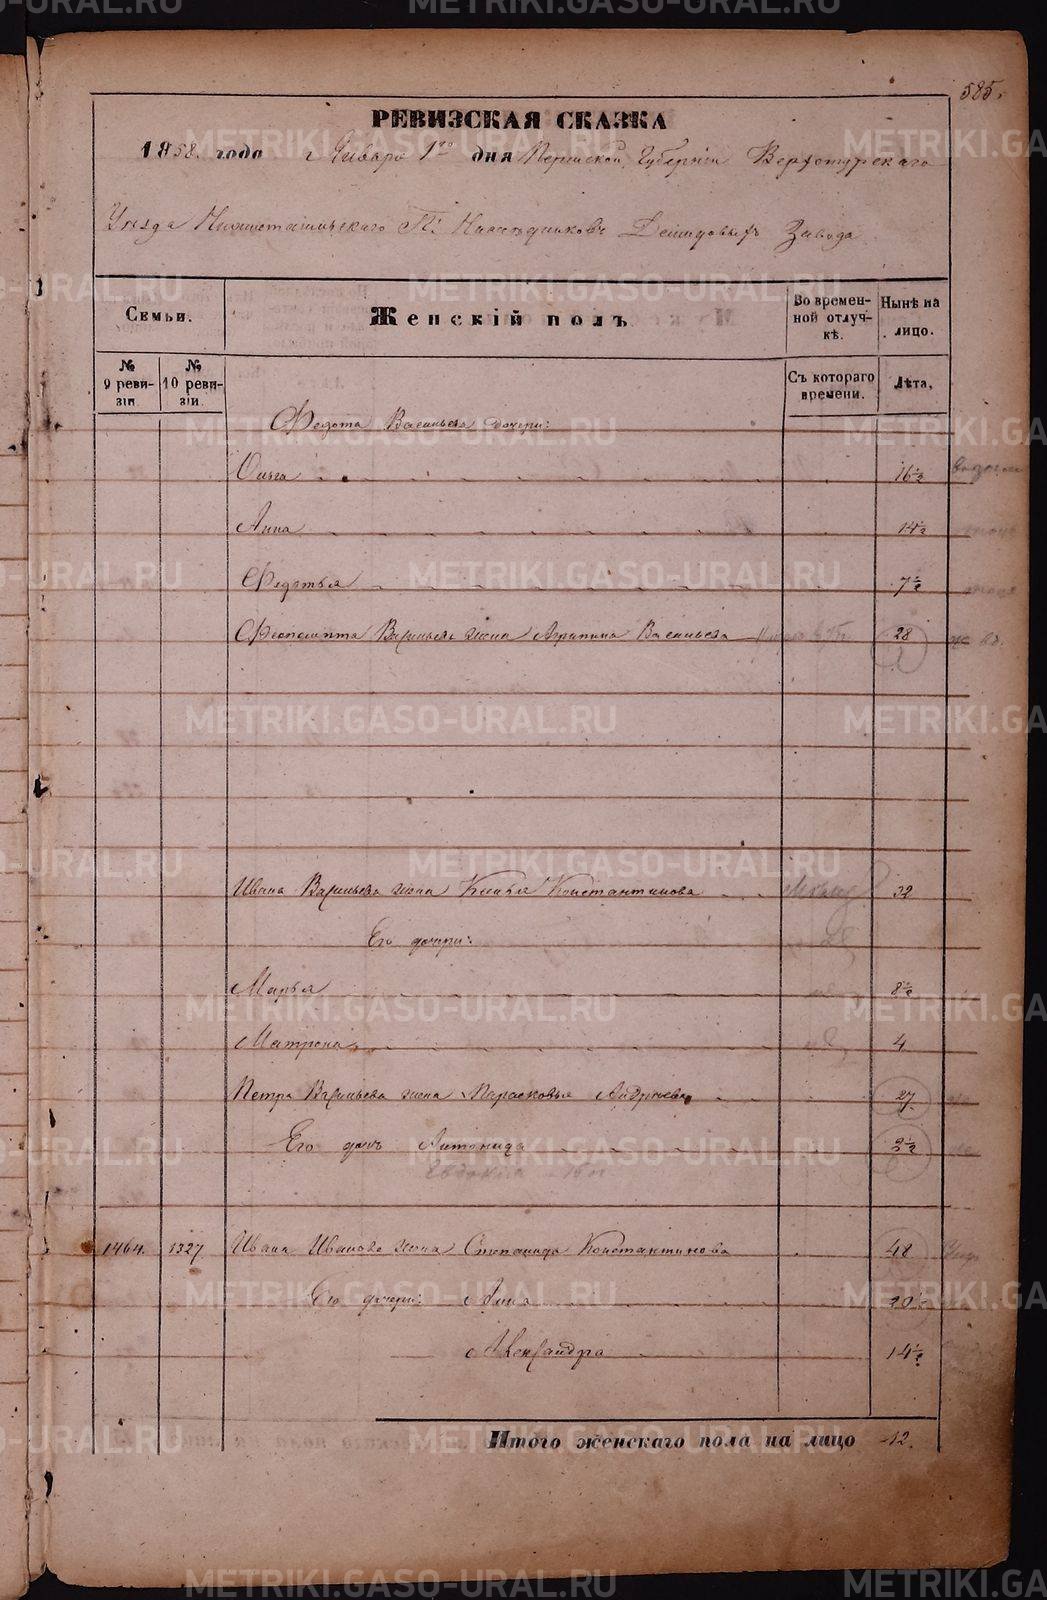 585.
РЕВИЗСКАЯ СКАЗКА
1858. года Января 1го дня Пермской Губерніи Верхотурскаго
Уѣзда Нижнетагильскаго Гг: Наслѣдниковъ Демидовыхъ Завода
Семьи.
Женскій полъ
Во времен-
ной отлуч-
кѣ.
Нынѣ на
лицо.
№
9 реви-
зіи
№
10 реви-
зіи.
Съ котораго
времени.
Лѣта,
Федота Васильева дочери:
Ольга 16½
Анна 14½
Федотья 7½
Феопемпта Васильева жена Агрипина Васильева 28
Ивана Васильева жена Ксенья Константинова 32
Его дочери:
Марья 8½
Матрена 4
Петра Васильева жена Парасковья Андреева 27
Его дочь Антонида 2½
Евдокія
1464. 1327 Ивана Иванова жена Степанида Константинова 48
Его дочери: Анна 20½
Александра 14½
Итого женскаго пола на лицо 12.
METRIKI.GASO-URAL.RU